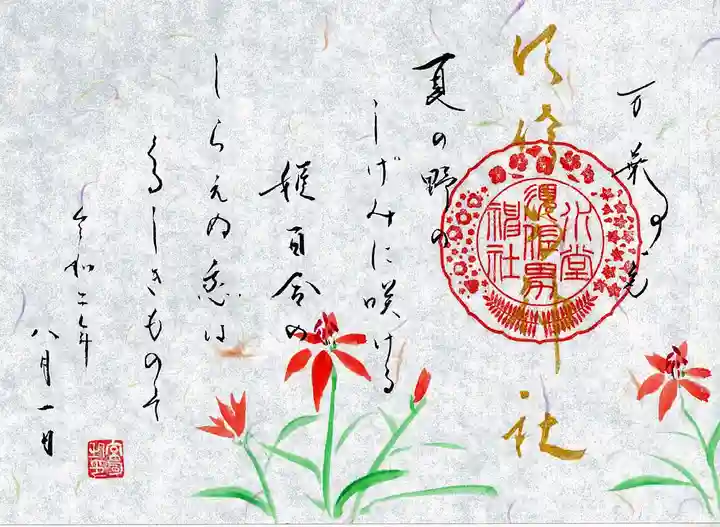 万葉の花
神社
神社
夏の野の
しげみに咲ける
姫百合の
しらえぬ恋は
くるしきものそ
令和二年
八月一日